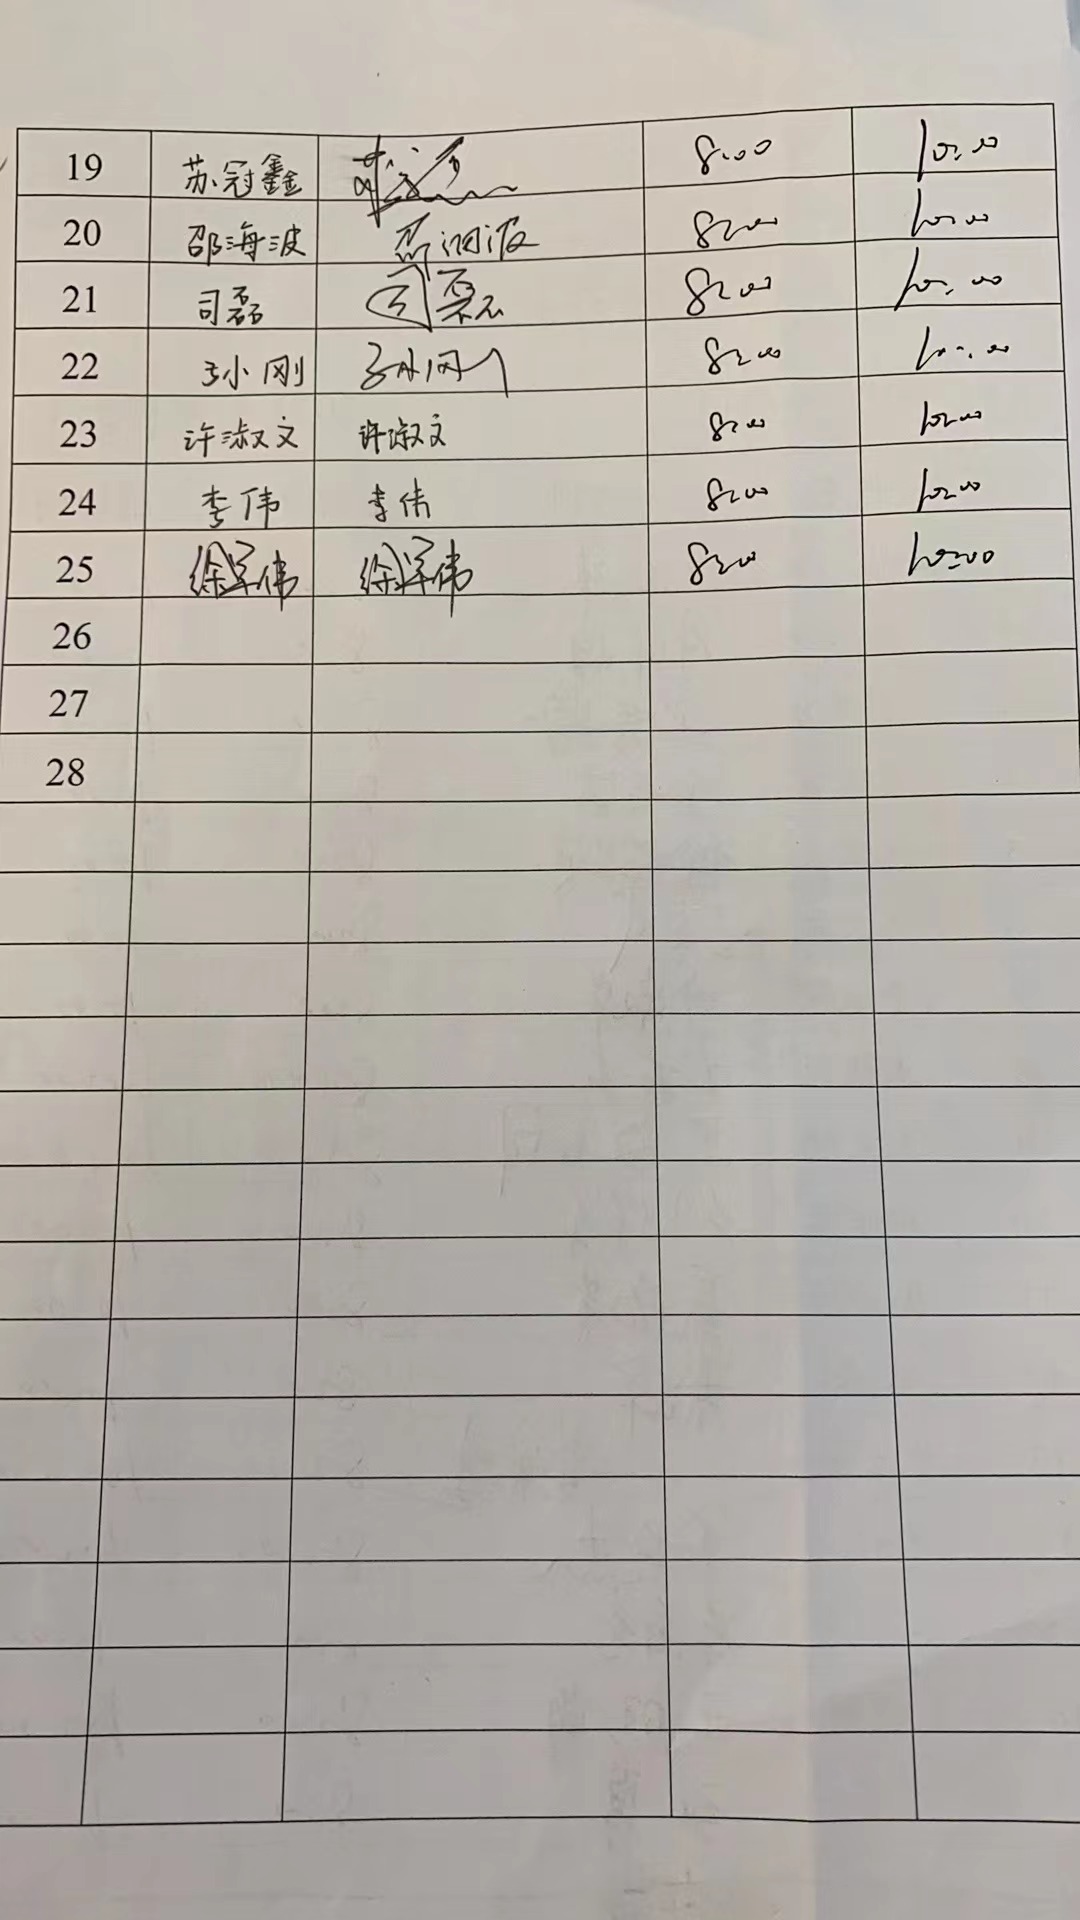 19 苏冠鑫 8:00 10:00
20 邵海波 邵海波 8:00 10:00
21 司磊 司磊 8:00 10:00
22 孙小刚 8:00 10:00
23 许淑文 许淑文 8:00 10:00
24 李伟 李伟 8:00 10:00
25 徐军伟 徐军伟 8:00 10:00
26
27
28